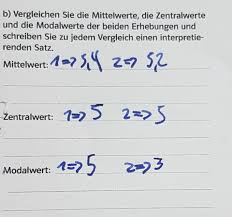 b) Vergleichen Sie die Mittelwerte, die Zentralwerte
und die Modalwerte der beiden Erhebungen und
schreiben Sie zu jedem Vergleich einen interpretie-
renden Satz.
Mittelwert: 1=> 5,4 2=> 5,2
Zentralwert: 1=> 5 2=> 5
Modalwert: 1=> 5 2=> 3